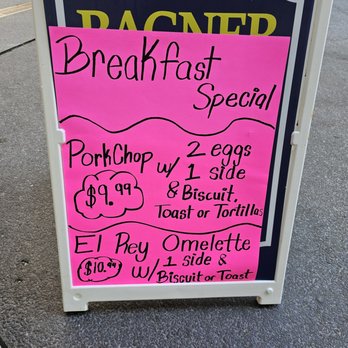 BAGNER
Breakfast
Special
PorkChop w/ 2 eggs
1 side
$9.99 & Biscuit,
Toast or Tortillas
El Rey Omelette
$10.99 w/ 1 side &
Biscuit or Toast